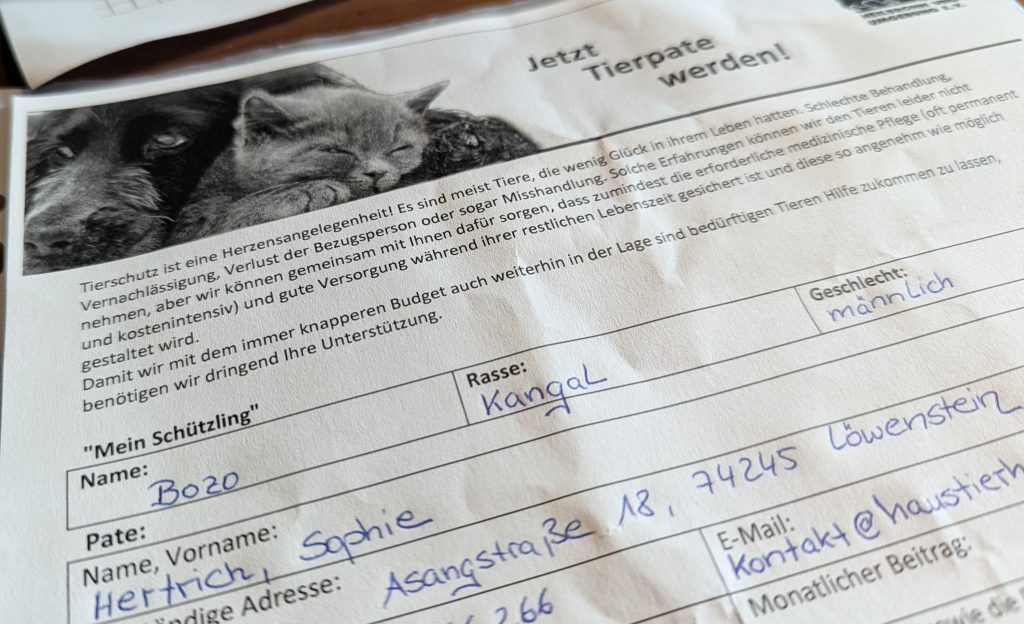 Jetzt
Tierpate
werden!
Tierschutz ist eine Herzensangelegenheit! Es sind meist Tiere, die wenig Glück in ihrem Leben hatten. Schlechte Behandlung,
Vernachlässigung, Verlust der Bezugsperson oder sogar Misshandlung. Solche Erfahrungen können wir den Tieren leider nicht
nehmen, aber wir können gemeinsam mit Ihnen dafür sorgen, dass zumindest die erforderliche medizinische Pflege (oft permanent
und kostenintensiv) und gute Versorgung während ihrer restlichen Lebenszeit gesichert ist und diese so angenehm wie möglich
gestaltet wird.
Damit wir mit dem immer knapperen Budget auch weiterhin in der Lage sind bedürftigen Tieren Hilfe zukommen zu lassen,
benötigen wir dringend Ihre Unterstützung.
"Mein Schützling"
Name: Rasse: Geschlecht:
Bozo Kangal männlich
Pate:
Name, Vorname:
Hertrich, Sophie
ndige Adresse: Asangstraße 18, 74245 Löwenstein
266 E-Mail:
kontakt@haustierh
Monatlicher Beitrag:
sowie die